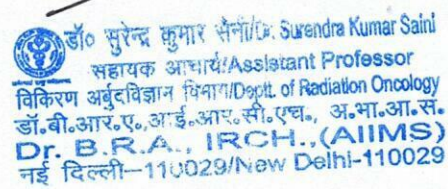 डॉ० सुरेन्द्र कुमार सैनी/Dr. Surendra Kumar Saini
सहायक आचार्य/Assistant Professor
विकिरण अर्बुदविज्ञान विभाग/Deptt. of Radiation Oncology
डॉ.बी.आर.ए.,आई.आर.सी.एच., अ.भा.आ.सं.
Dr. B.R.A., IRCH.,(AIIMS)
नई दिल्ली–110029/New Delhi-110029